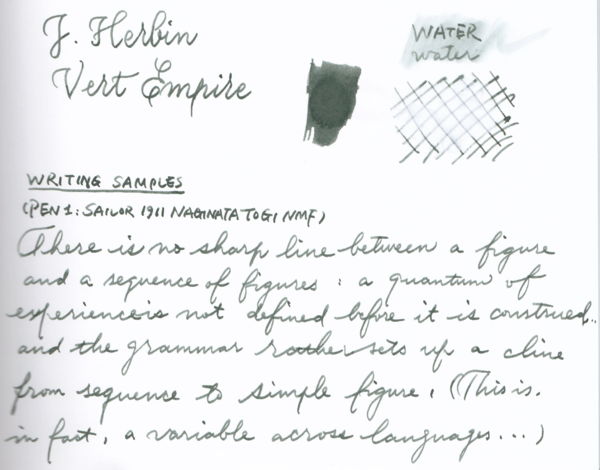 J. Herbin
Vert Empire
WATER
water
WRITING SAMPLES
(PEN 1: SAILOR 1911 NAGINATA TOGI NMF)
There is no sharp line between a figure
and a sequence of figures : a quantum of
experience is not defined before it is construed..
and the grammar rather sets up a cline
from sequence to simple figure. (This is.
in fact, a variable across languages...)